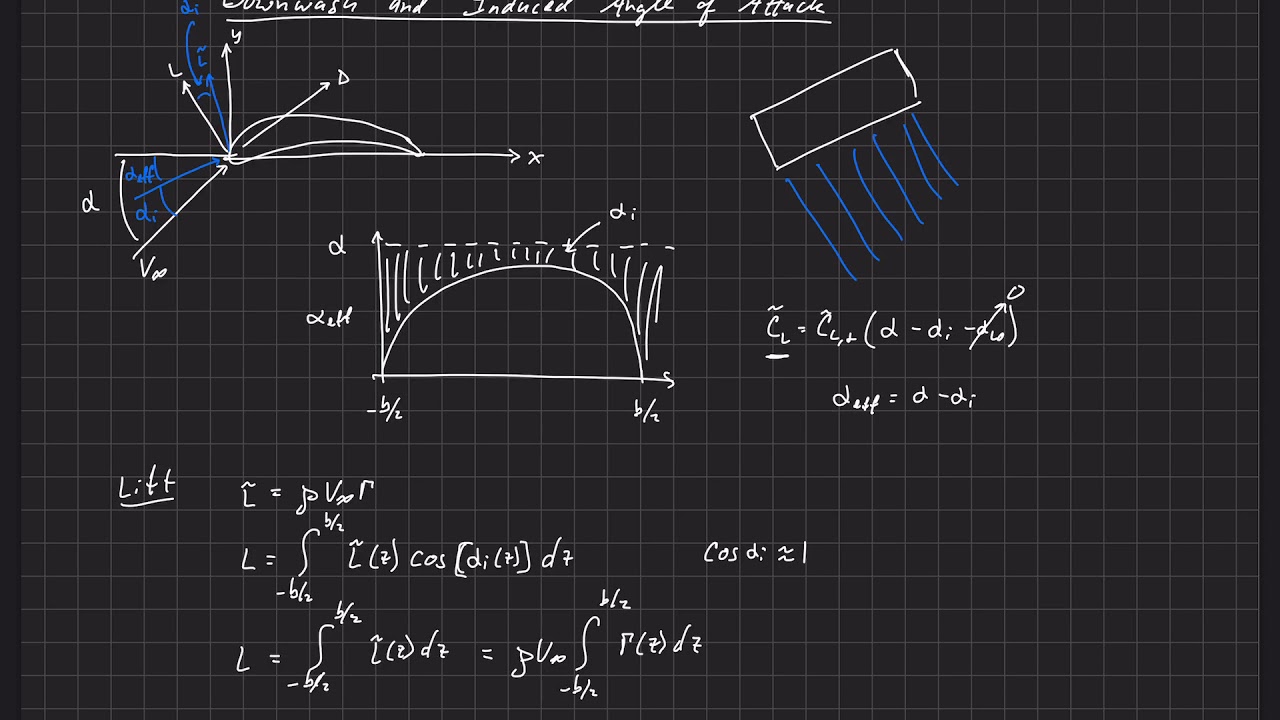 Downwash and Induced Angle of Attack
αi
y
L
L̃
D
x
αeff
α
αi
V∞
αi
α
αeff
-b/2
b/2
0
C̃L = C̃L,α (α - αi - αL0)
αeff = α - αi
Lift
L̃ = ρV∞Γ
L = ∫_{-b/2}^{b/2} L̃(z) cos[αi(z)] dz
cos αi ≈ 1
L = ∫_{-b/2}^{b/2} L̃(z) dz = ρV∞ ∫_{-b/2}^{b/2} Γ(z) dz